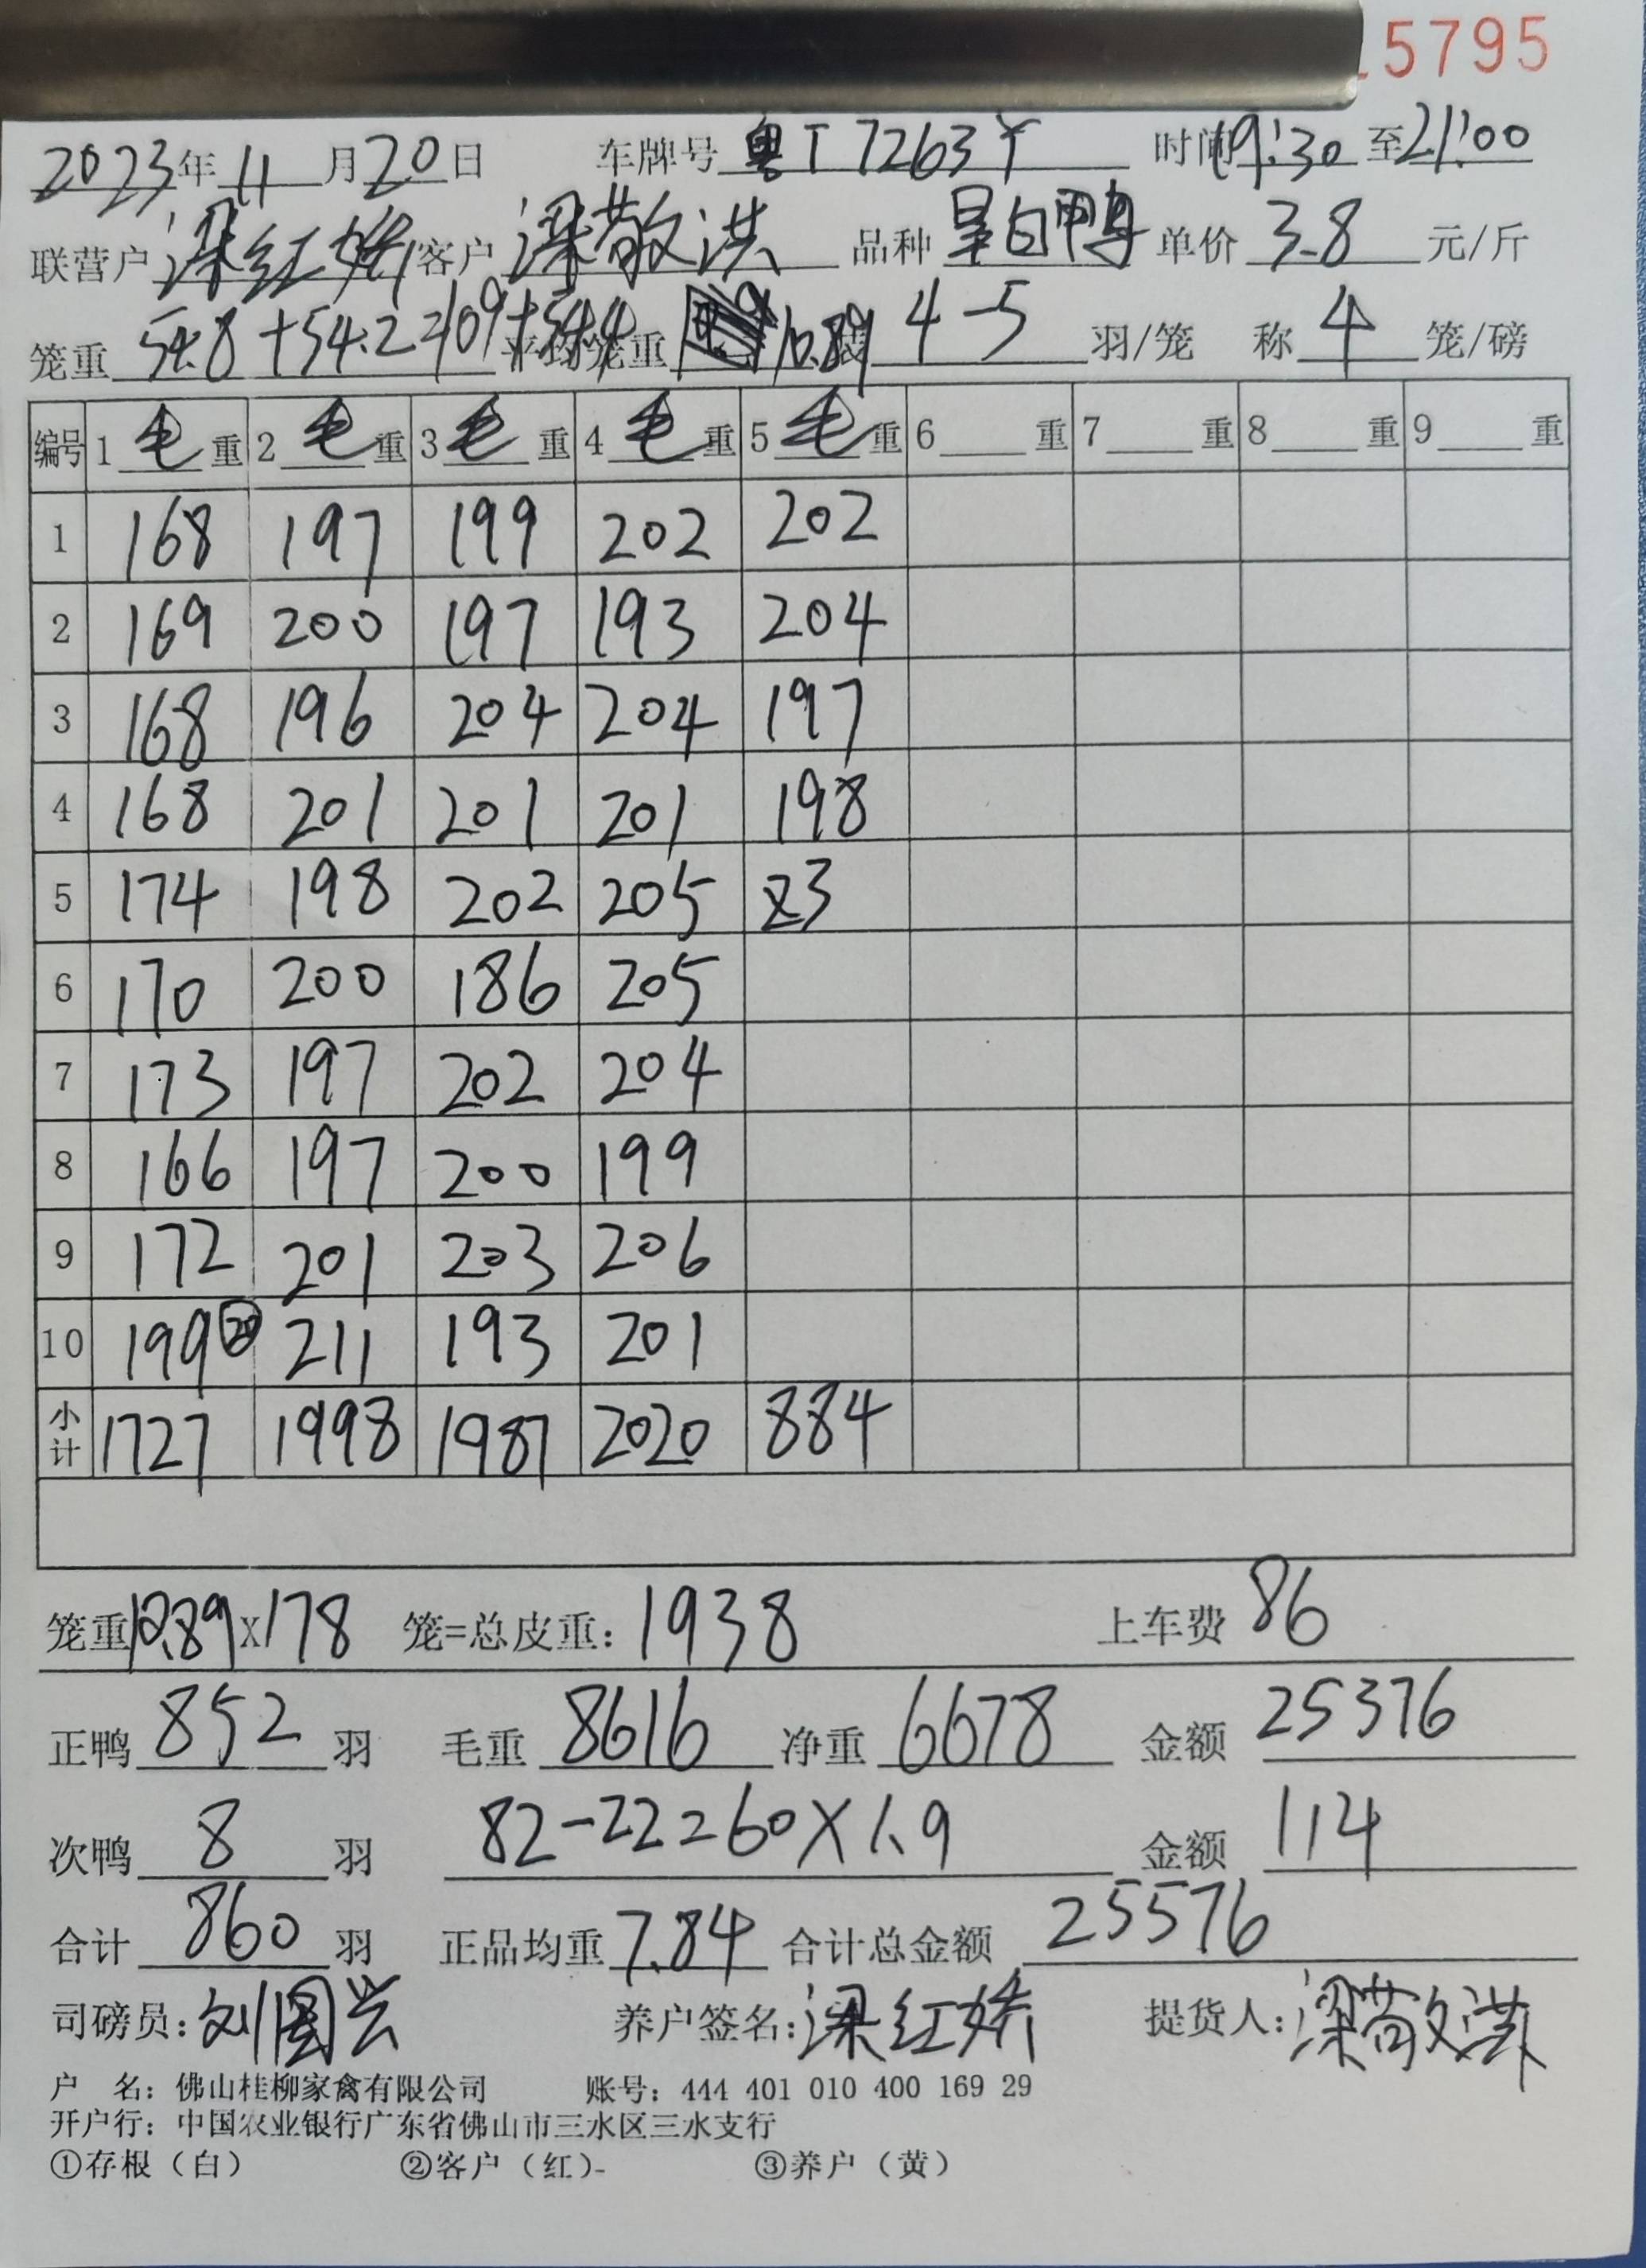 5795
2023年11月20日 车牌号 粤T7263Y 时间19:30至21:00
联营户 梁红娇 客户 梁敬洪 品种 白鸭 单价 3.8 元/斤
笼重 54.8+54.2=109+54.4 平均笼重 10.89 装 4-5 羽/笼 称 4 笼/磅
编号 1毛重 2毛重 3毛重 4毛重 5毛重 6重 7重 8重 9重
1 168 197 199 202 202
2 169 200 197 193 204
3 168 196 204 204 197
4 168 201 201 201 198
5 174 198 202 205 83
6 170 200 186 205
7 173 197 202 204
8 166 197 200 199
9 172 201 203 206
10 199 20 211 193 201
小计 1727 1998 1987 2020 884
笼重10.89X178 笼=总皮重：1938 上车费 86
正鸭 852 羽 毛重 8616 净重 6678 金额 25376
次鸭 8 羽 82-22=60X1.9 金额 114
合计 860 羽 正品均重 7.84 合计总金额 25576
司磅员：刘国兴 养户签名：梁红娇 提货人：梁敬洪
户 名：佛山桂柳家禽有限公司 账号：444 401 010 400 169 29
开户行：中国农业银行广东省佛山市三水区三水支行
①存根（白） ②客户（红） ③养户（黄）